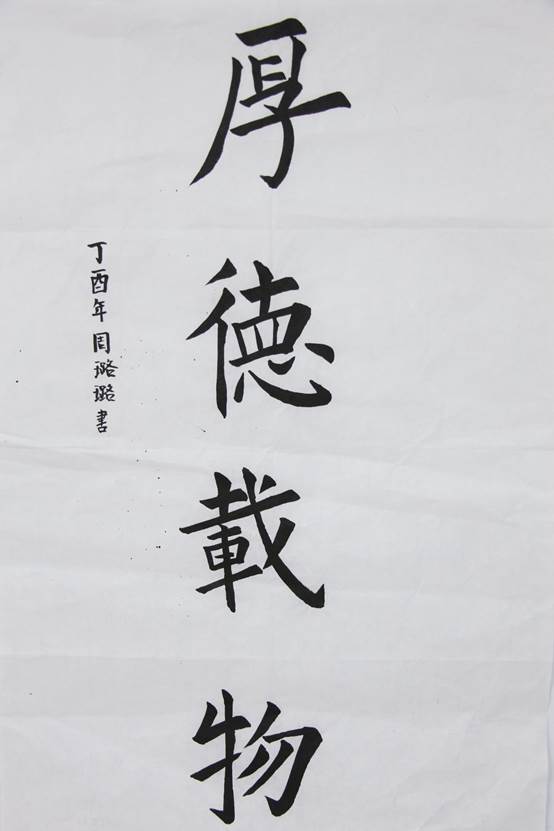 厚德載物
丁酉年周璐璐書